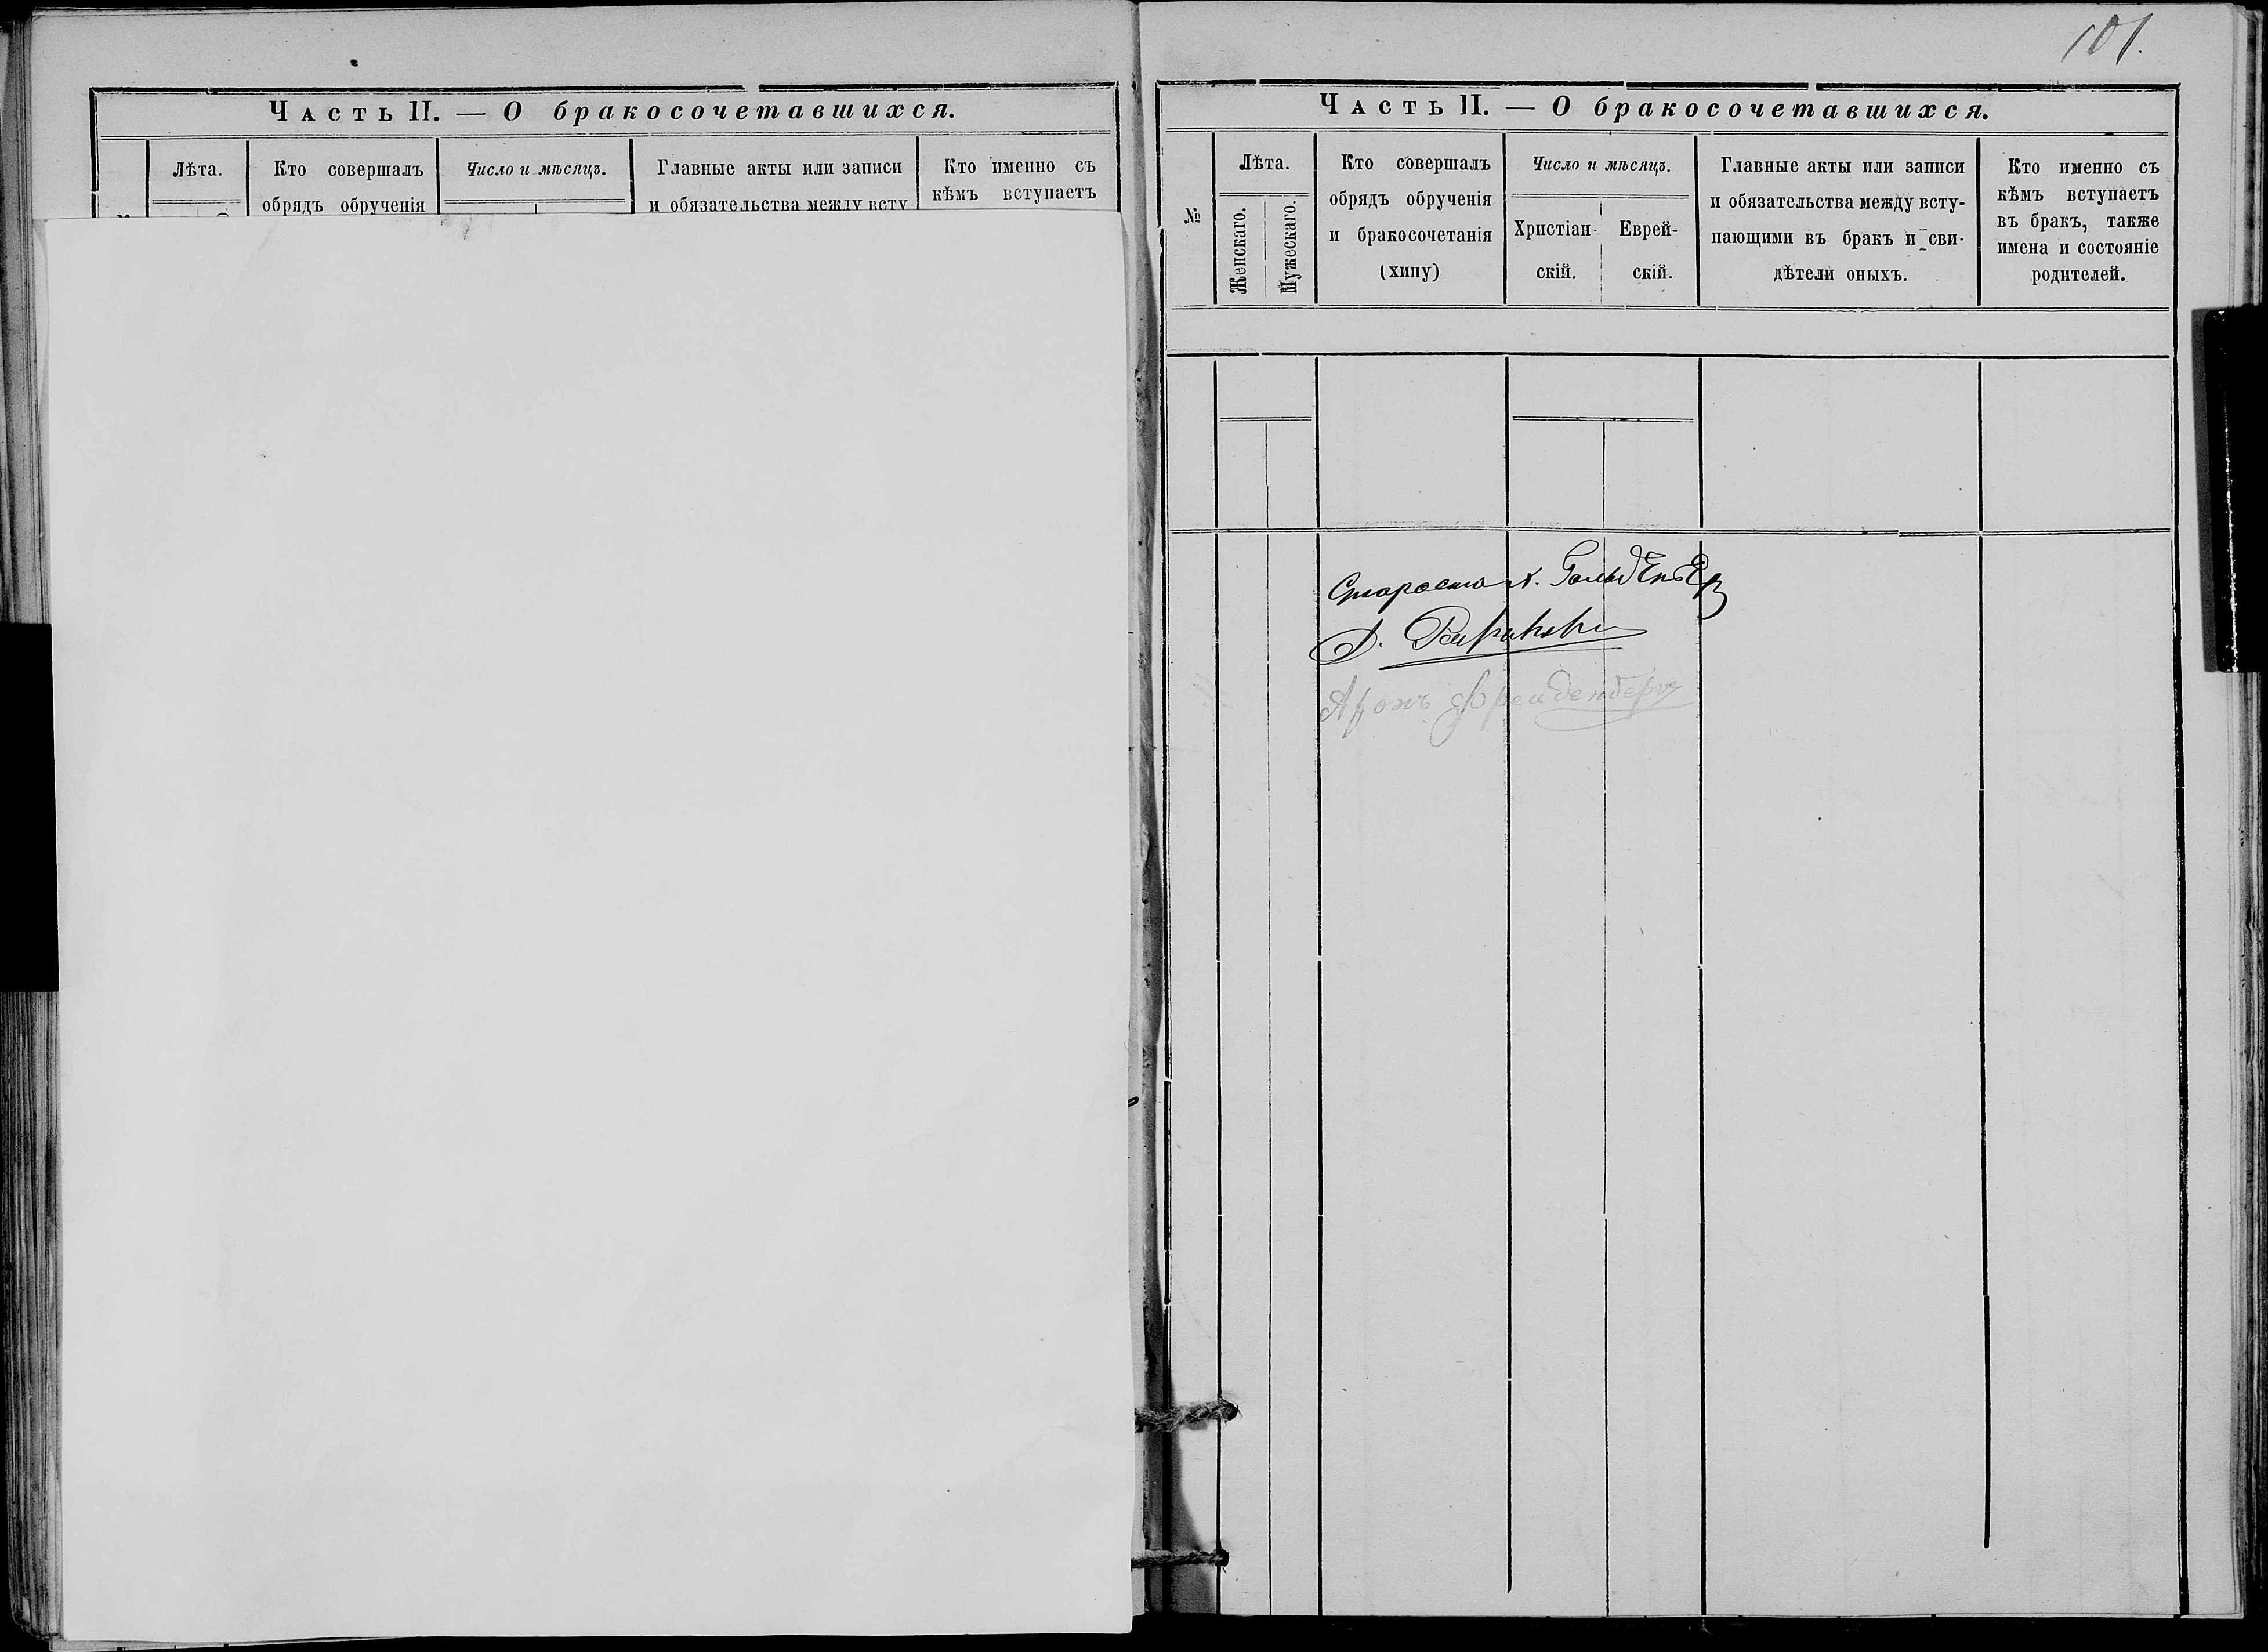 Часть II. — О бракосочетавшихся.
Лѣта.
Кто совершалъ
обрядъ обрученія
Число и мѣсяцъ.
Главные акты или записи
и обязательства между всту
Кто именно съ
кѣмъ вступаетъ
101.
Часть II. — О бракосочетавшихся.
№
Лѣта.
Женскаго.
Мужескаго.
Кто совершалъ
обрядъ обрученія
и бракосочетанія
(хипу)
Число и мѣсяцъ.
Христіан-
скій.
Еврей-
скій.
Главные акты или записи
и обязательства между всту-
пающими въ бракъ и сви-
дѣтели оныхъ.
Кто именно съ
кѣмъ вступаетъ
въ бракъ, также
имена и состояніе
родителей.
Староста
Аронъ Фрейденбергъ